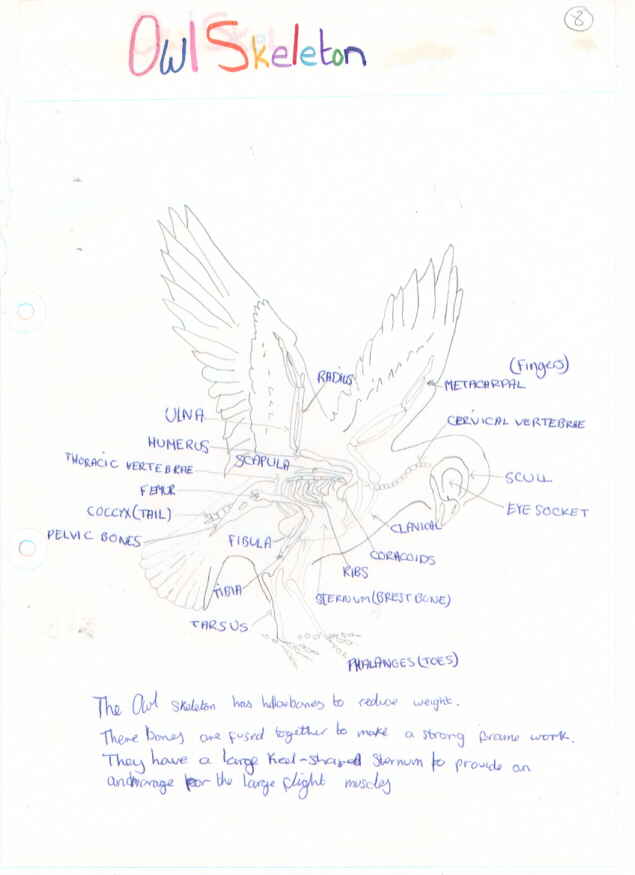 8
Owl Skeleton
(Fingers)
RADIUS
METACARPAL
ULNA
CERVICAL VERTEBRAE
HUMERUS
THORACIC VERTEBRAE
SCAPULA
SCULL
FEMUR
EYE SOCKET
COCCYX (TAIL)
CLAVICAL
PELVIC BONES
FIBULA
CORACOIDS
RIBS
TIBIA
STERNUM (BREST BONE)
TARSUS
PHALANGES (TOES)
The Owl skeleton has hollow bones to reduce weight.
There bones are fused together to make a strong frame work.
They have a large keel-shaped sternum to provide an
anchorage for the large flight muscles